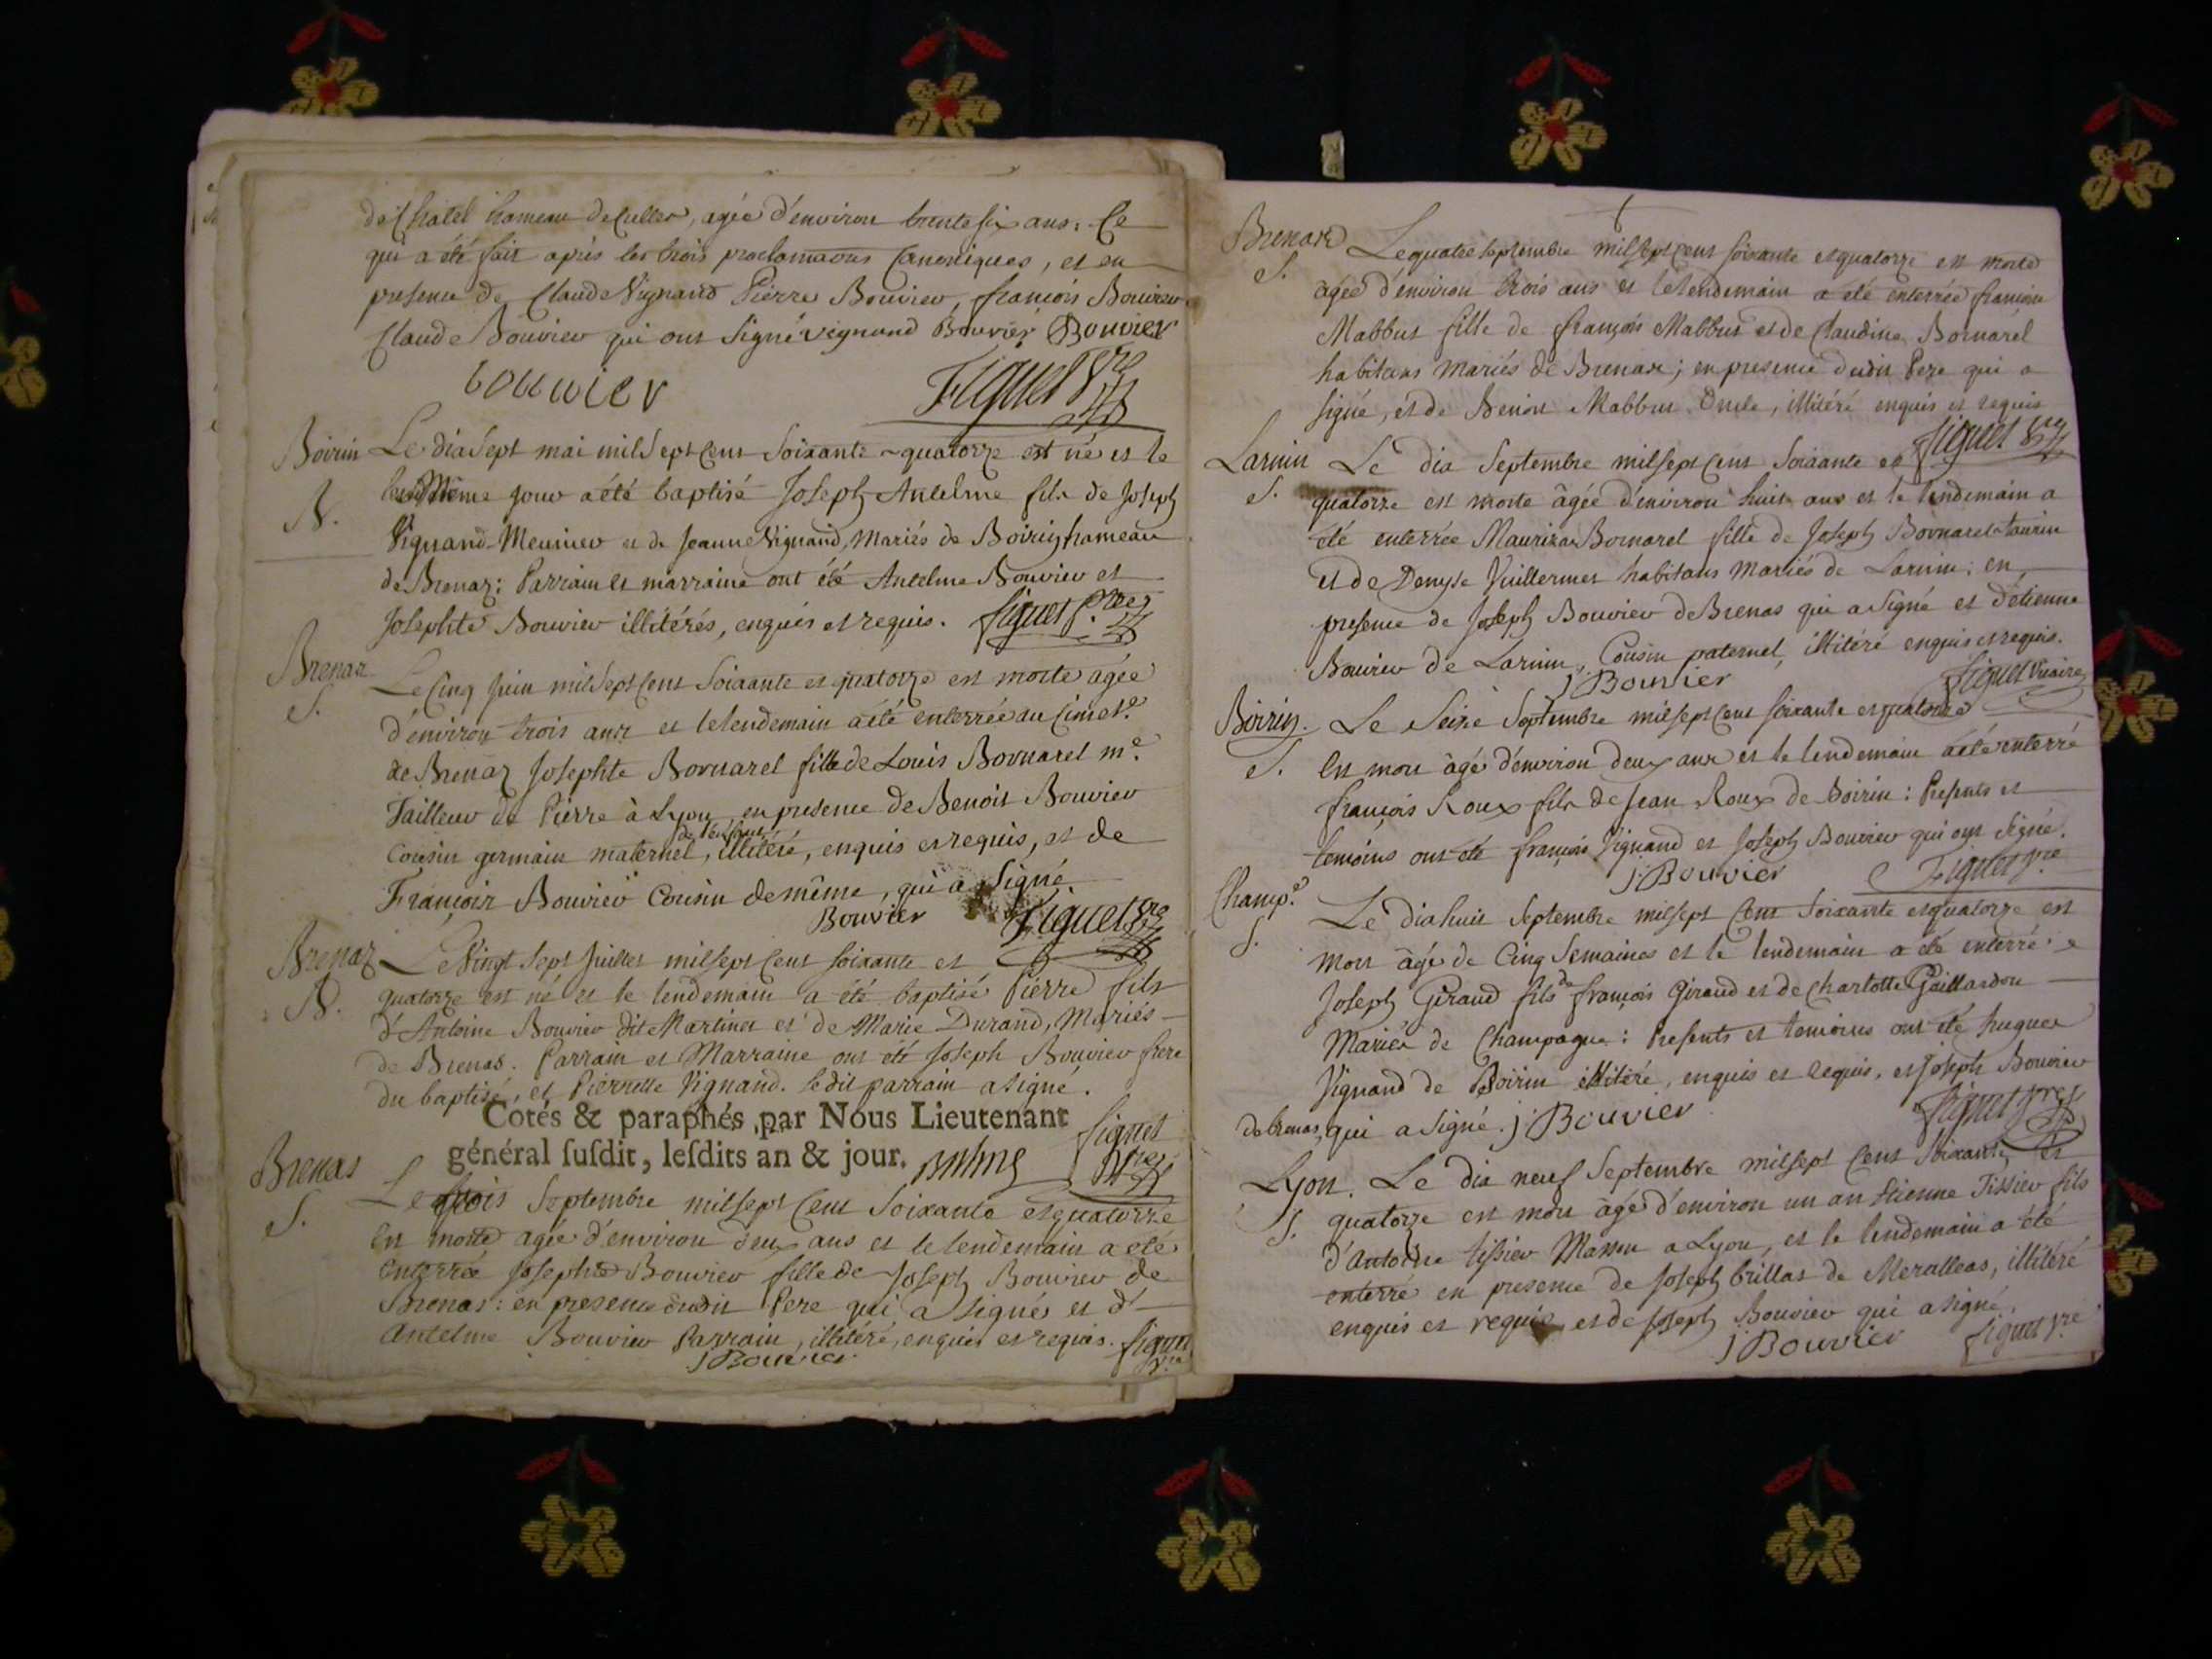 de Chatel hameau de Culles, agée d'environ trente six ans: Ce
qui a été fait après les trois proclamaons Canoniques, et en
presence de Claude Vignand Pierre Bouvier, françois Bouvier
Claude Bouvier qui ont signé vignand Bouvier Bouvier
bouvier Figuet
Boirin Le dix sept mai mil sept cent soixante-quatorze est né et le
N. même jour a été baptisé Joseph Antelme fils de Joseph
Vignand-Meunier et de Jeanne Vignand, mariés de Boirin hameau
de Brenaz: Parrain et marraine ont été Antelme Bouvier et
Josephte Bouvier illitérés, enquis et requis. figuet
Brenaz Le cinq juin mil sept cent soixante et quatorze est morte agée
S. d'environ trois ans et le lendemain a été enterrée au Cimet.e
de Brenaz Josephte Bornarel fille de Louis Bornarel m.e
Tailleur de Pierre à Lyon, en presence de Benoit Bouvier
Cousin germain maternel, de l'enfant, illitéré, enquis et requis, et de
François Bouvier Cousin de même, qui a signé
Bouvier Figuet
Brenaz Le Vingt sept Juillet mil sept cent soixante et
N. quatorze est né et le lendemain a été baptisé Pierre fils
d'Antoine Bouvier dit Martinet et de Marie Durand, Mariés
de Brenas. Parrain et Marraine ont été Joseph Bouvier frere
du baptisé, et Pierrette Vignand. ledit parrain a signé.
Cotés & paraphés par Nous Lieutenant figuet
général susdit, lesdits an & jour.
Brenas Le trois Septembre mil sept cent soixante et quatorze
S. est morte agée d'environ deux ans et le lendemain a été
enterrée Josephte Bouvier fille de Joseph Bouvier de
Brenas: en presence dudit Pere qui a signés et d'
Antelme Bouvier Parrain, illitéré, enquis et requis. figuet
j Bouvier
Brenaz Le quatre septembre mil sept cent soixante et quatorze est morte
S. agée d'environ trois ans et le lendemain a été enterrée françoise
Mabbut fille de françois Mabbut et de Claudine Bornarel
habitans mariés de Brenaz; en presence dudit Pere qui a
signé, et de Benoit Mabbut Oncle, illitéré enquis et requis
Larnin Le dix Septembre mil sept cent soixante et figuet
S. quatorze est morte âgée d'environ huit ans et le lendemain a
été enterrée Mauriza Bornarel fille de Joseph Bornarel-Taurin
et de Denyse Vuillermet habitans mariés de Larnin: en
presence de Joseph Bouvier de Brenas qui a signé et d'étienne
Bouvier de Larnin, Cousin paternel, illitéré enquis et requis.
j Bouvier figuet Vicaire
Boirin. Le Seize Septembre mil sept cent soixante et quatorze
S. est mort âgé d'environ deux ans et le lendemain a été enterré
françois Roux fils de Jean Roux de Boirin: Presents et
temoins ont été françois Vignand et Joseph Bouvier qui ont signé.
j. Bouvier Figuet vre
Champ.e Le dix huit Septembre mil sept Cent soixante et quatorze est
S. mort âgé de cinq semaines et le lendemain a été enterré
Joseph Giraud fils de françois Giraud et de Charlotte Gaillardon
Mariés de Champagne: Presents et temoins ont été hugues
Vignand de Boirin illitéré, enquis et requis, et Joseph Bouvier
de brenas, qui a signé. j. Bouvier figuet
Lyon. Le dix neuf Septembre mil sept cent soixante et
S. quatorze est mort âgé d'environ un an Etienne Tissier fils
d'Antoine tissier Masson a Lyon, et le lendemain a été
enterré en presence de Joseph brillat de Meralleas, illitéré
enquis et requis et de Joseph Bouvier qui a signé.
j Bouvier figuet vre